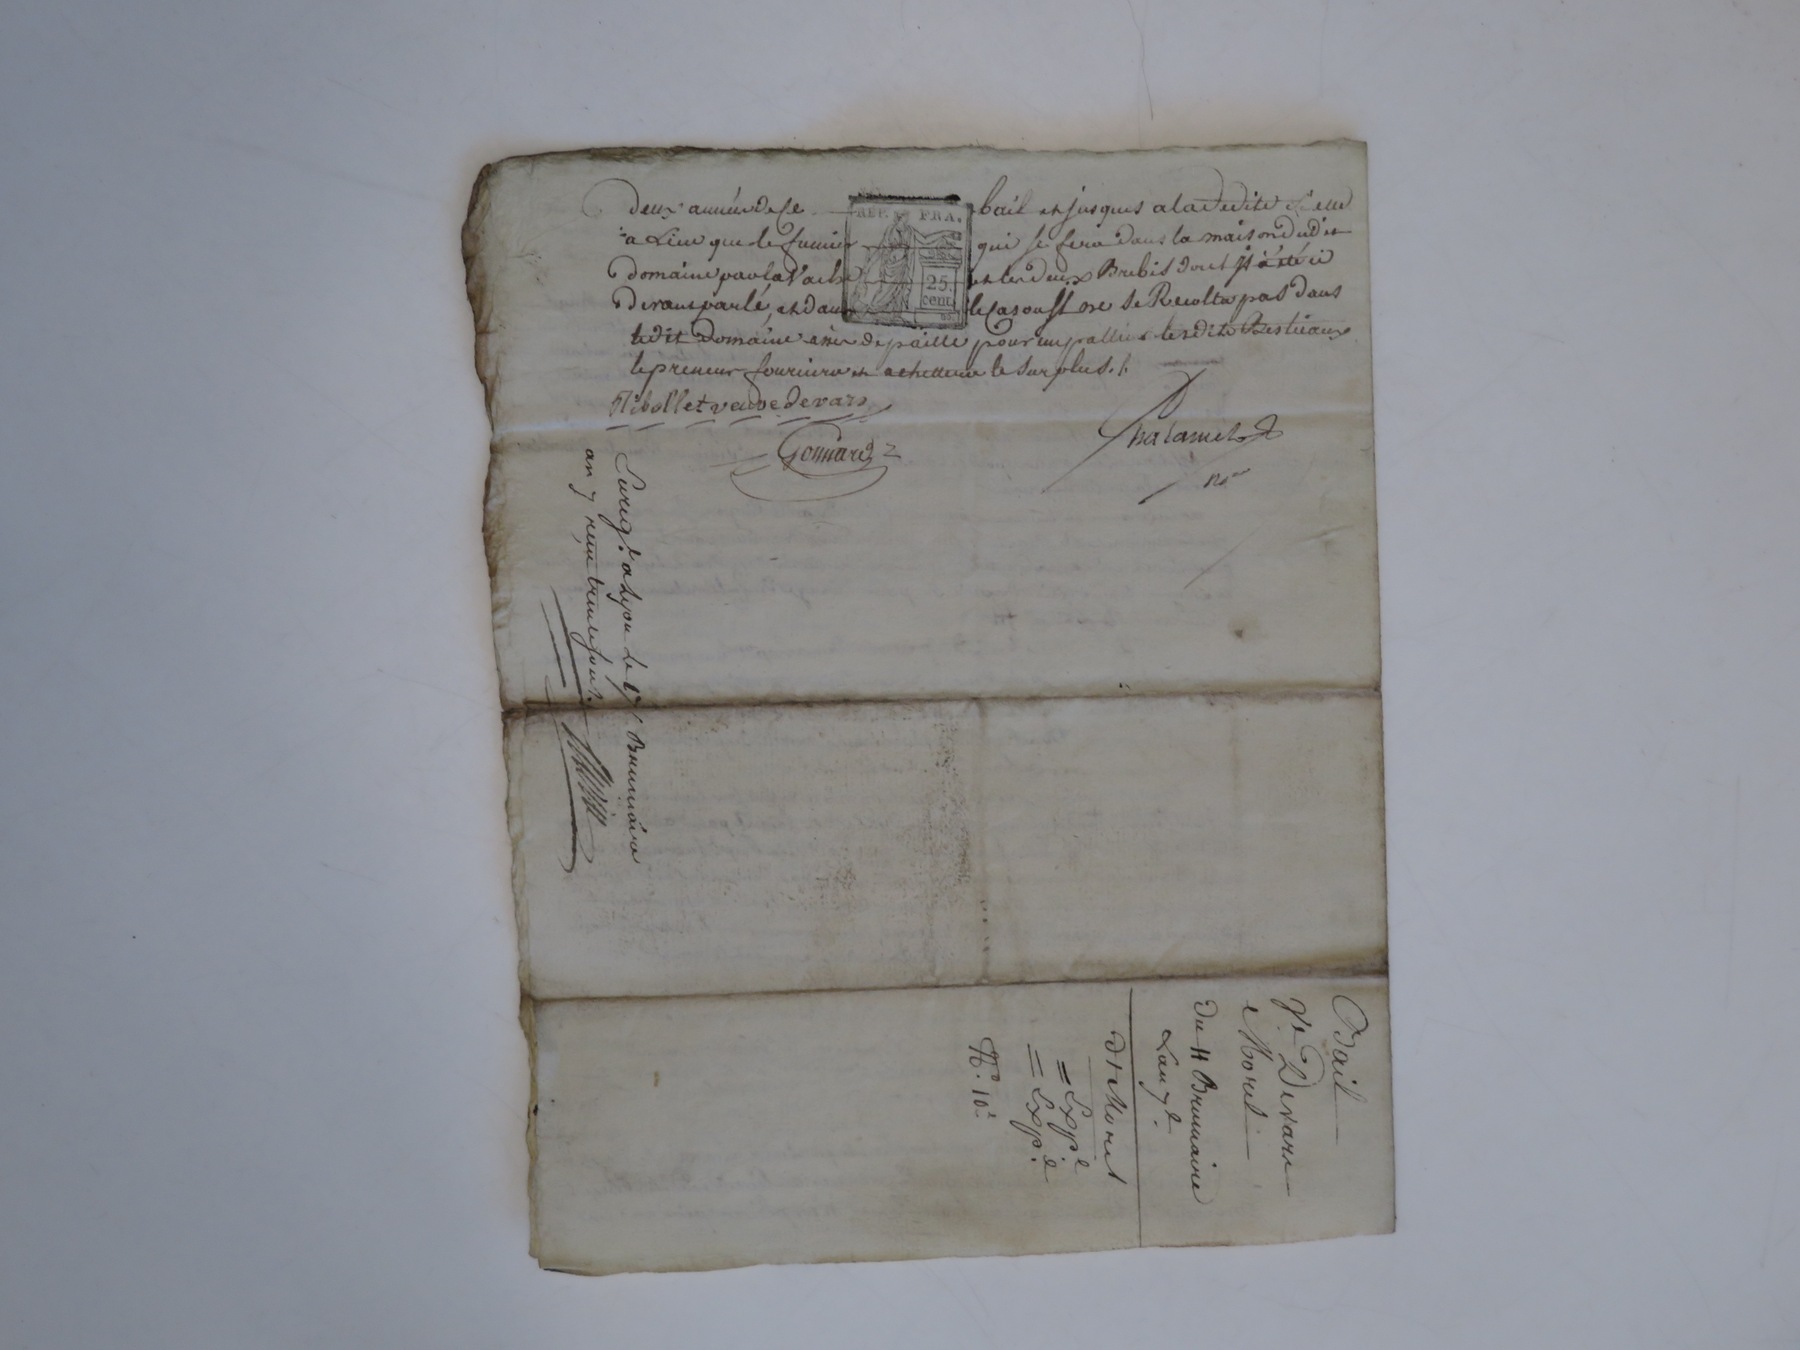 deux année de ce bail et jusques a la redite d'elle
a Lieu que le fumier qui se fera dans la maison dudit
domaine par la Vache et les deux Brebis dont il a été ci
devant parlé, et dans le Cas ou Il ne Se Recolta pas dans
ledit Domaine assés de paille pour lesdits Bestieaux
le preneur fournira et achettera le Surplus ./.
REP. FRA.
25.
cent.
Ribollet veuve devars
Gonnard
Chalamel
nre
Enreg.é a Lyon le 17 Brumaire
an 7 reçu
Bail
Ve. Devars
a Morel
du 11 Brumaire
L'an 7e.
dt Morel
= Exp.é
= Exp.é
No. 10